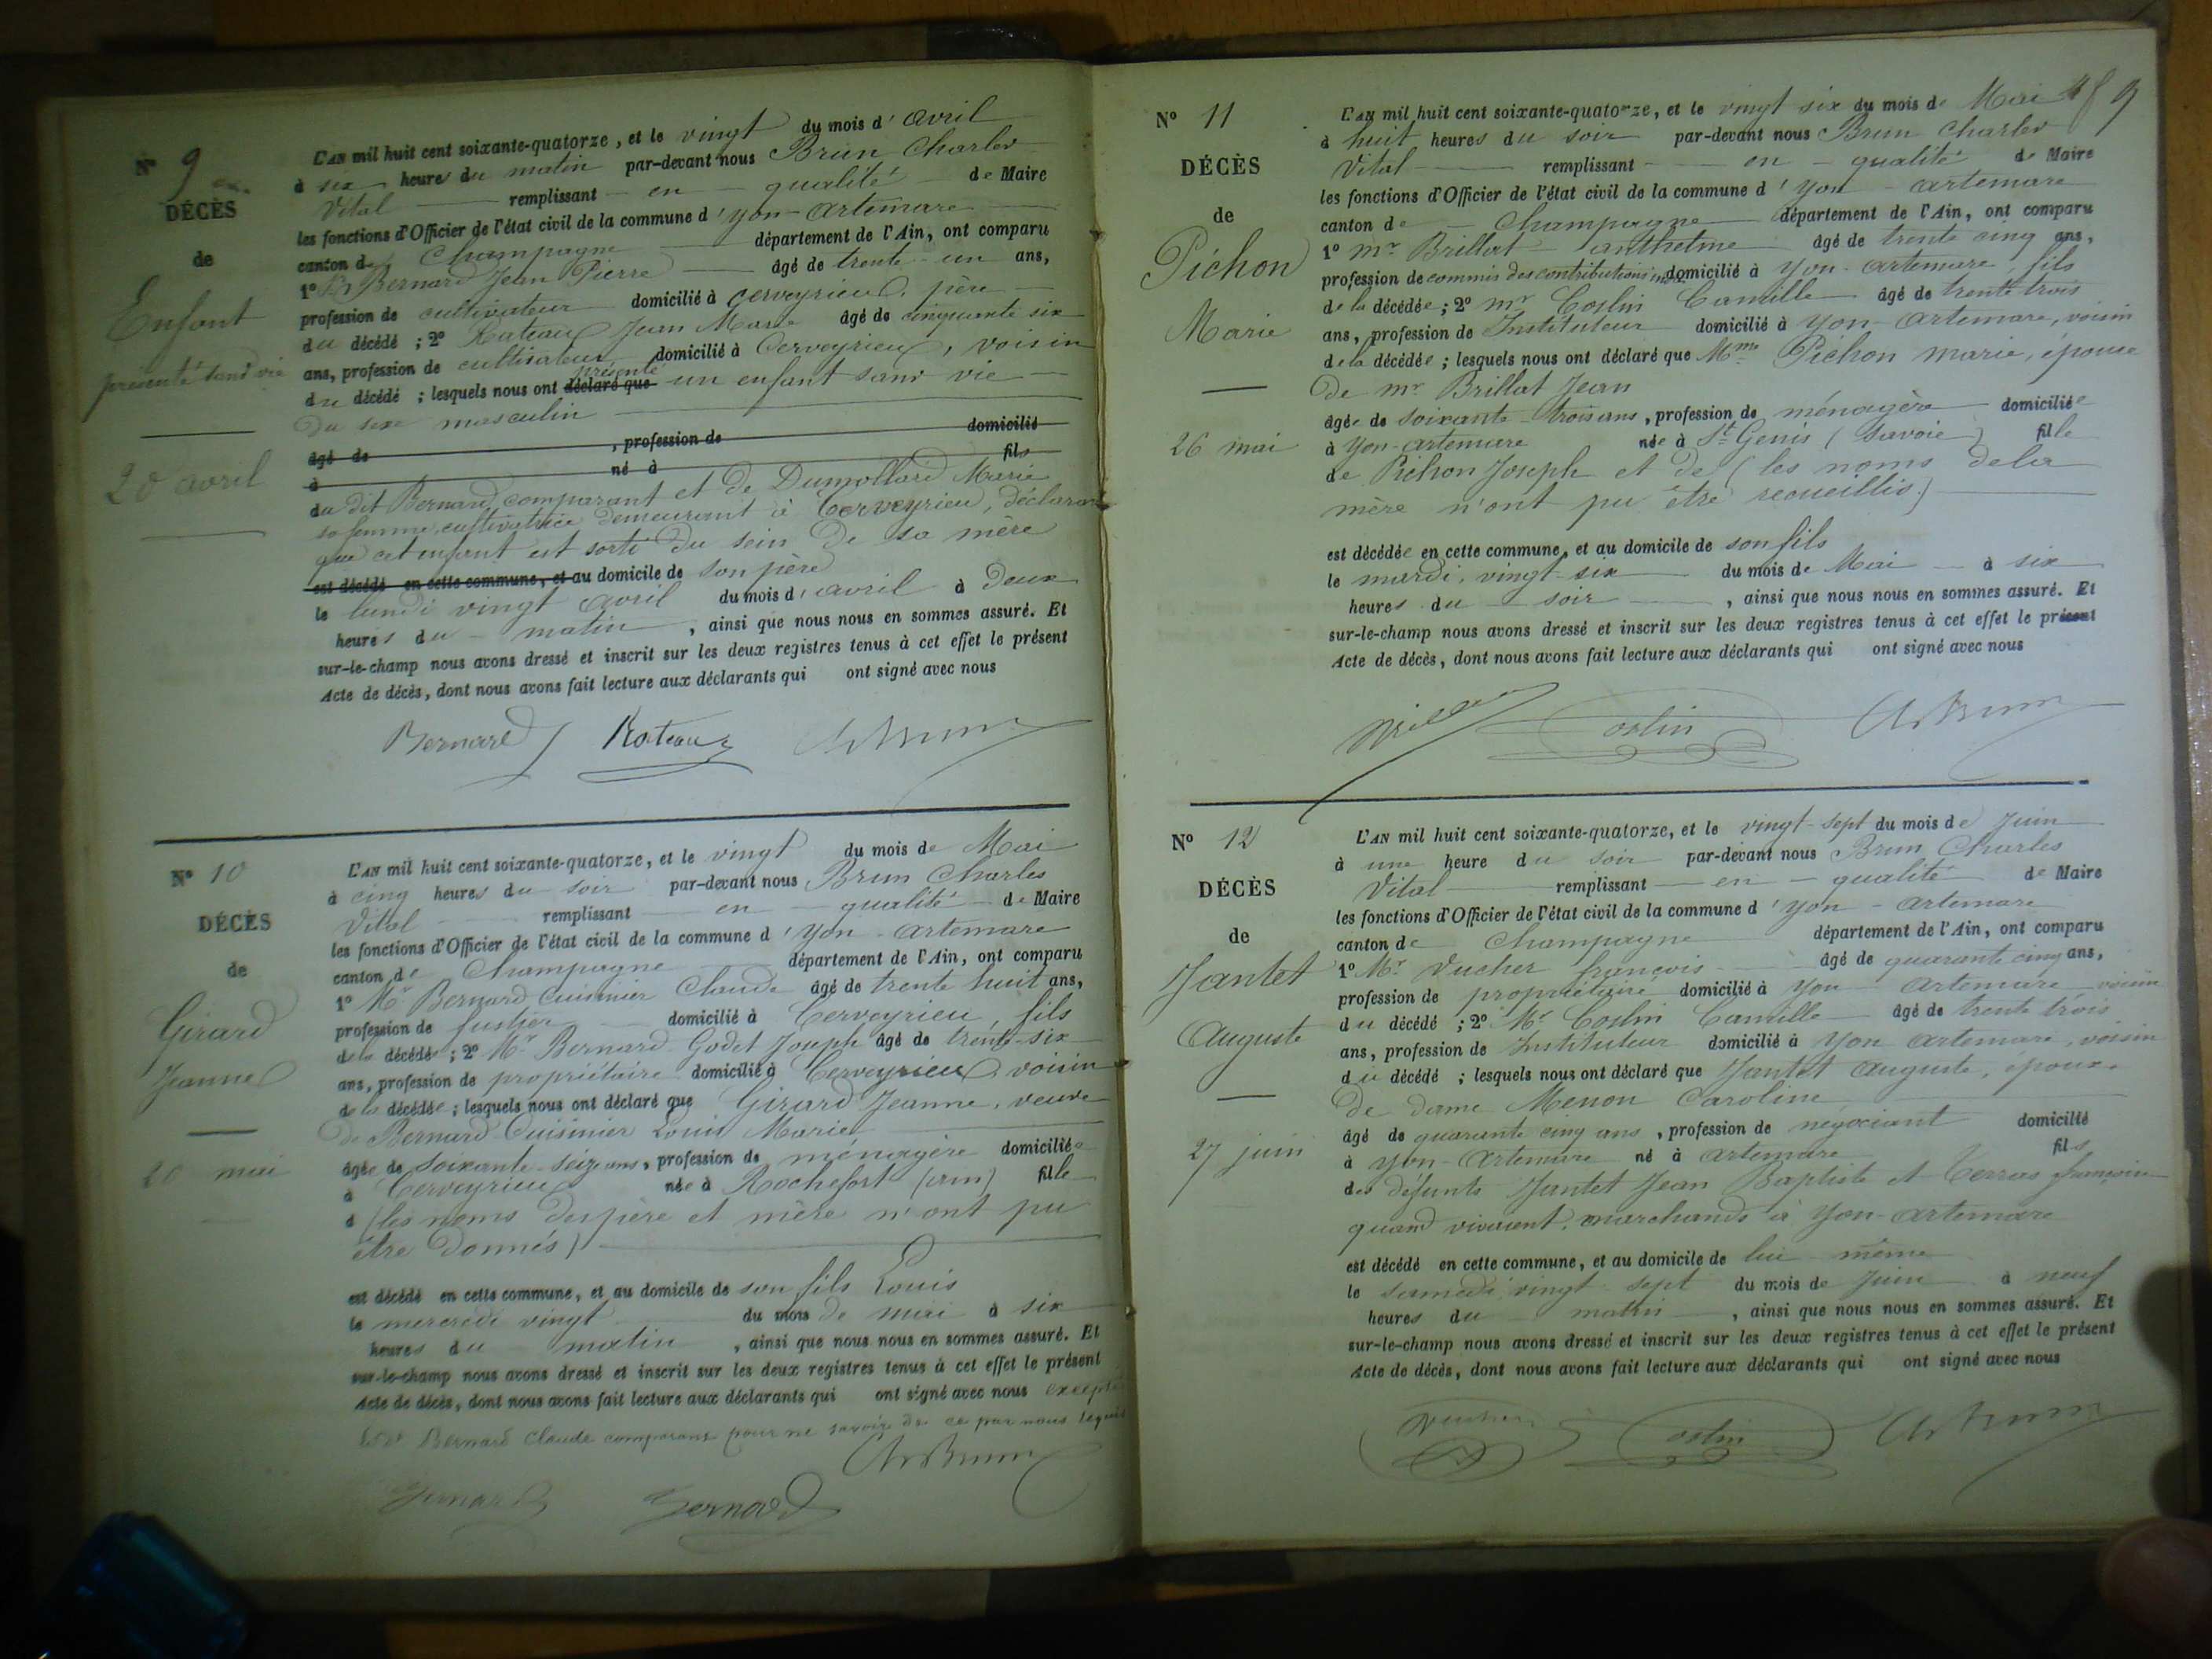 N° 9
DÉCÈS
de
Enfant
présenté sans vie
20 avril
L'AN mil huit cent soixante-quatorze, et le vingt du mois d'avril
à six heures du matin par-devant nous Brun Charles
Vital remplissant en qualité de Maire
les fonctions d'Officier de l'état civil de la commune d'yon-artemare
canton de Champagne département de l'Ain, ont comparu
1° Bernard Jean Pierre âgé de trente-un ans,
profession de cultivateur domicilié à cerveyrieu, père
du décédé ; 2° Rateau Jean Marie âgé de cinquante six
ans, profession de cultivateur domicilié à Cerveyrieu, voisin
du décédé ; lesquels nous ont déclaré que présenté un enfant sans vie
Du sexe masculin
âgé de , profession de domicilié
à né à fils
du dit Bernard comparant et de Dumollard Marie
sa femme, cultivatrice demeurant à Cerveyrieu, déclarant
que cet enfant est sorti du sein de sa mère
est décédé en cette commune, et au domicile de son père
le lundi vingt avril du mois d'avril à deux
heures du matin, ainsi que nous nous en sommes assuré. Et
sur-le-champ nous avons dressé et inscrit sur les deux registres tenus à cet effet le présent
Acte de décès, dont nous avons fait lecture aux déclarants qui ont signé avec nous
Bernard Rateau Ch Brun
N° 10
DÉCÈS
de
Girard
Jeanne
20 mai
L'AN mil huit cent soixante-quatorze, et le vingt du mois de Mai
à cinq heures du soir par-devant nous Brun Charles
Vital remplissant en qualité de Maire
les fonctions d'Officier de l'état civil de la commune d'yon-artemare
canton de Champagne département de l'Ain, ont comparu
1° Mr Bernard Cuisinier Claude âgé de trente huit ans,
profession de fustier domicilié à Cerveyrieu, fils
de la décédée ; 2° Mr Bernard Godet Joseph âgé de trente-six
ans, profession de propriétaire domicilié à Cerveyrieu, voisin
de la décédée ; lesquels nous ont déclaré que Girard Jeanne, veuve
de Bernard Cuisinier Louis Marie
âgée de soixante-seize ans, profession de ménagère domiciliée
à Cerveyrieu née à Rochefort (ain) fille
d (les noms des père et mère n'ont pu
être donnés)
est décédé en cette commune, et au domicile de son fils Louis
le mercredi vingt du mois de mai à six
heures du matin, ainsi que nous nous en sommes assuré. Et
sur-le-champ nous avons dressé et inscrit sur les deux registres tenus à cet effet le présent
Acte de décès, dont nous avons fait lecture aux déclarants qui ont signé avec nous excepté
Bernard Claude comparant pour ne savoir de ce par nous requis
Ch Brun
Bernard Bernard
N° 11
DÉCÈS
de
Pichon
Marie
26 mai
9
L'AN mil huit cent soixante-quatorze, et le vingt six du mois de Mai
à huit heures du soir par-devant nous Brun Charles
Vital remplissant en qualité de Maire
les fonctions d'Officier de l'état civil de la commune d'yon-artemare
canton de Champagne département de l'Ain, ont comparu
1° mr Brillat anthelme âgé de trente cinq ans,
profession de commis des contributions ind. domicilié à yon-artemare, fils
de la décédée ; 2° mr Coslin Camille âgé de trente trois
ans, profession de Instituteur domicilié à yon-artemare, voisin
de la décédée ; lesquels nous ont déclaré que Mme Pichon marie, épouse
de mr Brillat Jean
âgée de soixante-trois ans, profession de ménagère domiciliée
à yon-artemare née à St Genis (Savoie) fille
de Pichon Joseph et de (les noms de la
mère n'ont pu être recueillis)
est décédée en cette commune, et au domicile de son fils
le mardi, vingt-six du mois de Mai à six
heures du soir, ainsi que nous nous en sommes assuré. Et
sur-le-champ nous avons dressé et inscrit sur les deux registres tenus à cet effet le présent
Acte de décès, dont nous avons fait lecture aux déclarants qui ont signé avec nous
Coslin Ch Brun
N° 12
DÉCÈS
de
Jantet
Auguste
27 juin
L'AN mil huit cent soixante-quatorze, et le vingt-sept du mois de juin
à une heure du soir par-devant nous Brun Charles
Vital remplissant en qualité de Maire
les fonctions d'Officier de l'état civil de la commune d'yon-artemare
canton de Champagne département de l'Ain, ont comparu
1° Mr Vucher françois âgé de quarante cinq ans,
profession de propriétaire domicilié à yon artemare voisin
du décédé ; 2° Mr Coslin Camille âgé de trente trois
ans, profession de Instituteur domicilié à yon artemare, voisin
du décédé ; lesquels nous ont déclaré que Jantet Auguste, époux
de dame Menon Caroline
âgé de quarante cinq ans, profession de négociant domicilié
à yon-artemare né à artemare fils
des défunts Jantet Jean Baptiste et Terras françoise
quand vivaient, marchands à yon-artemare
est décédé en cette commune, et au domicile de lui même
le samedi vingt-sept du mois de juin à neuf
heures du matin, ainsi que nous nous en sommes assuré. Et
sur-le-champ nous avons dressé et inscrit sur les deux registres tenus à cet effet le présent
Acte de décès, dont nous avons fait lecture aux déclarants qui ont signé avec nous
Vucher Coslin Ch Brun